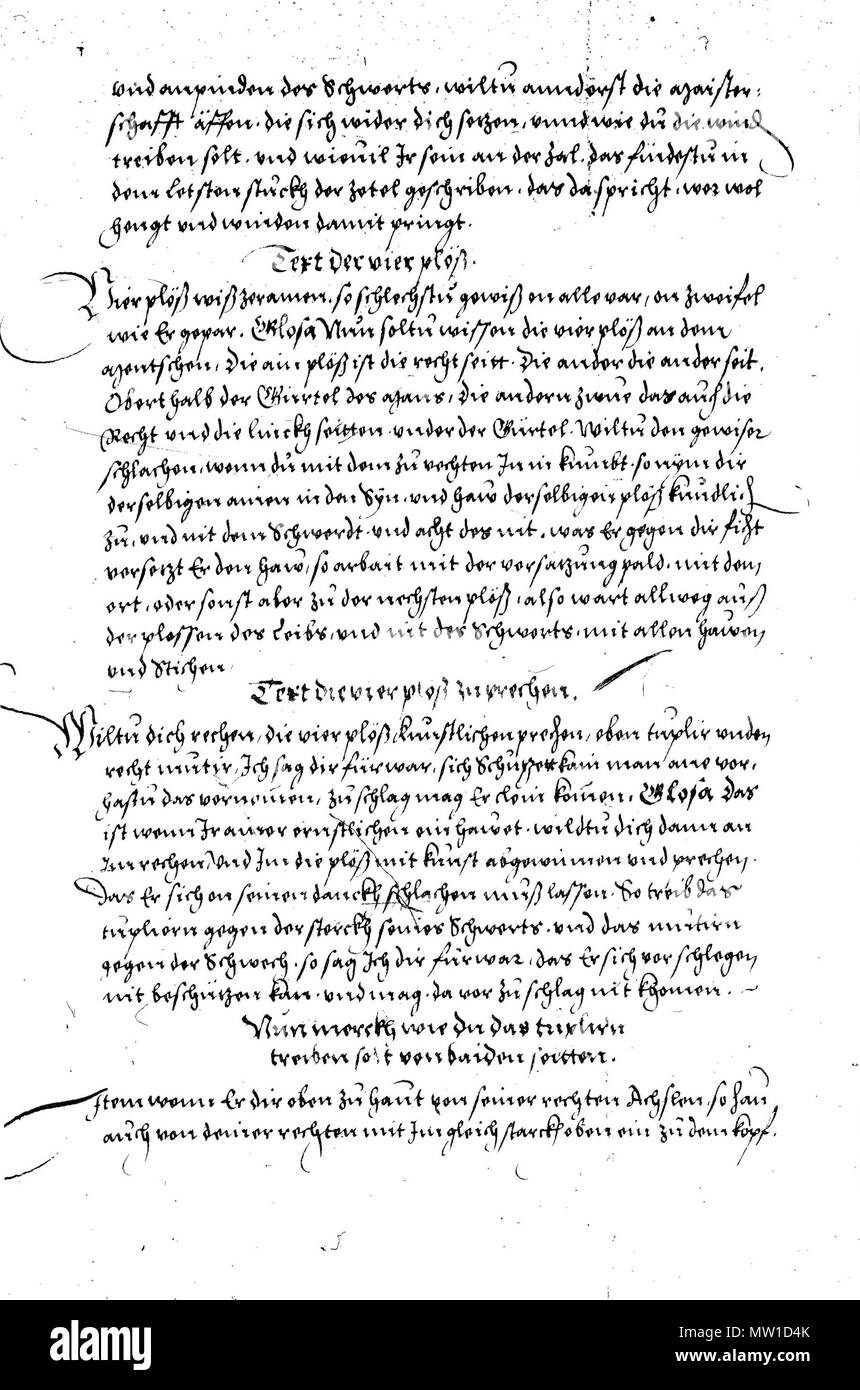 vnd anpinden des Schwerts, wiltu annderst die maister:
schafft äffen. die sich wider dich setzen, vnnd wie du die wind
treiben solt. vnd wieuil Ir sein an der Zal. das findestu in
dem letsten stuckh der zetel geschriben. das da spricht. wer wol
hengt vnd winden damit pringt.
Text der vier plöß.
Vier plöß wiß zeramen. so schlechstu gewiß on alle var, on zweifel
wie Er gepar. Glosa Nun soltu wissen die vier plöß an dem
mentschen, Die ain plöß ist die recht seitt. Die ander die ander seit.
Oberthalb der Gürtel des mans, die andern zwue das auch die
Recht vnd die linckh seitten vnder der Gürtel. Wiltu den gewiser
schlachen, wenn du mit dem zu vechten In in kumbt. so nym dir
derselbigen ainen in den Syn, vnd haw derselbigen plöß kundlich
zu, vnd nit dem Schwerdt. vnd acht des nit. was Er gegen dir ficht
versetzt Er den haw, so arbait mit der versatzung pald. mit dem
ort. oder sonst aber zu der nechsten plöß, also wart allweg auß
der plossen des Leibs, vnd nit des Schwerts. mit allen hawen
vnd Stichen.
Text die vier plöß zuprechen.
Wiltu dich rechen, die vier plöß kunstlichen prechen, oben tuplir vnden
recht mutir, Ich sag dir fürwar, sich Schützet kain man ane var,
hastu das vernomen, zu schlag mag Er clein komen. Glosa Das
ist wenn Ir ainer ernstlichen ein hawet. wildtu dich dann an
Im rechen, Vnd Im die plöß mit kunst abgewinnen vnd prechen.
Das Er sich on seinen danckh schlachen muß lassen. So treib das
tupliern gegen der sterckh seines Schwerts. vnd das mutirn
gegen der Schwech. so sag Ich dir fürwar, das Er sich vor schlegen
nit beschützen kan. vnd mag. da vor zu schlag nit khomen.
Nun merckh wie du das tuplirn
treiben solt von baiden seitten.
Item wenn Er dir oben zu haut von seiner rechten Achslen. so hau
auch von deiner rechten mit Im gleich starckh oben ein zu dem kopf.
alamy
Image ID: MW1D4K
www.alamy.com